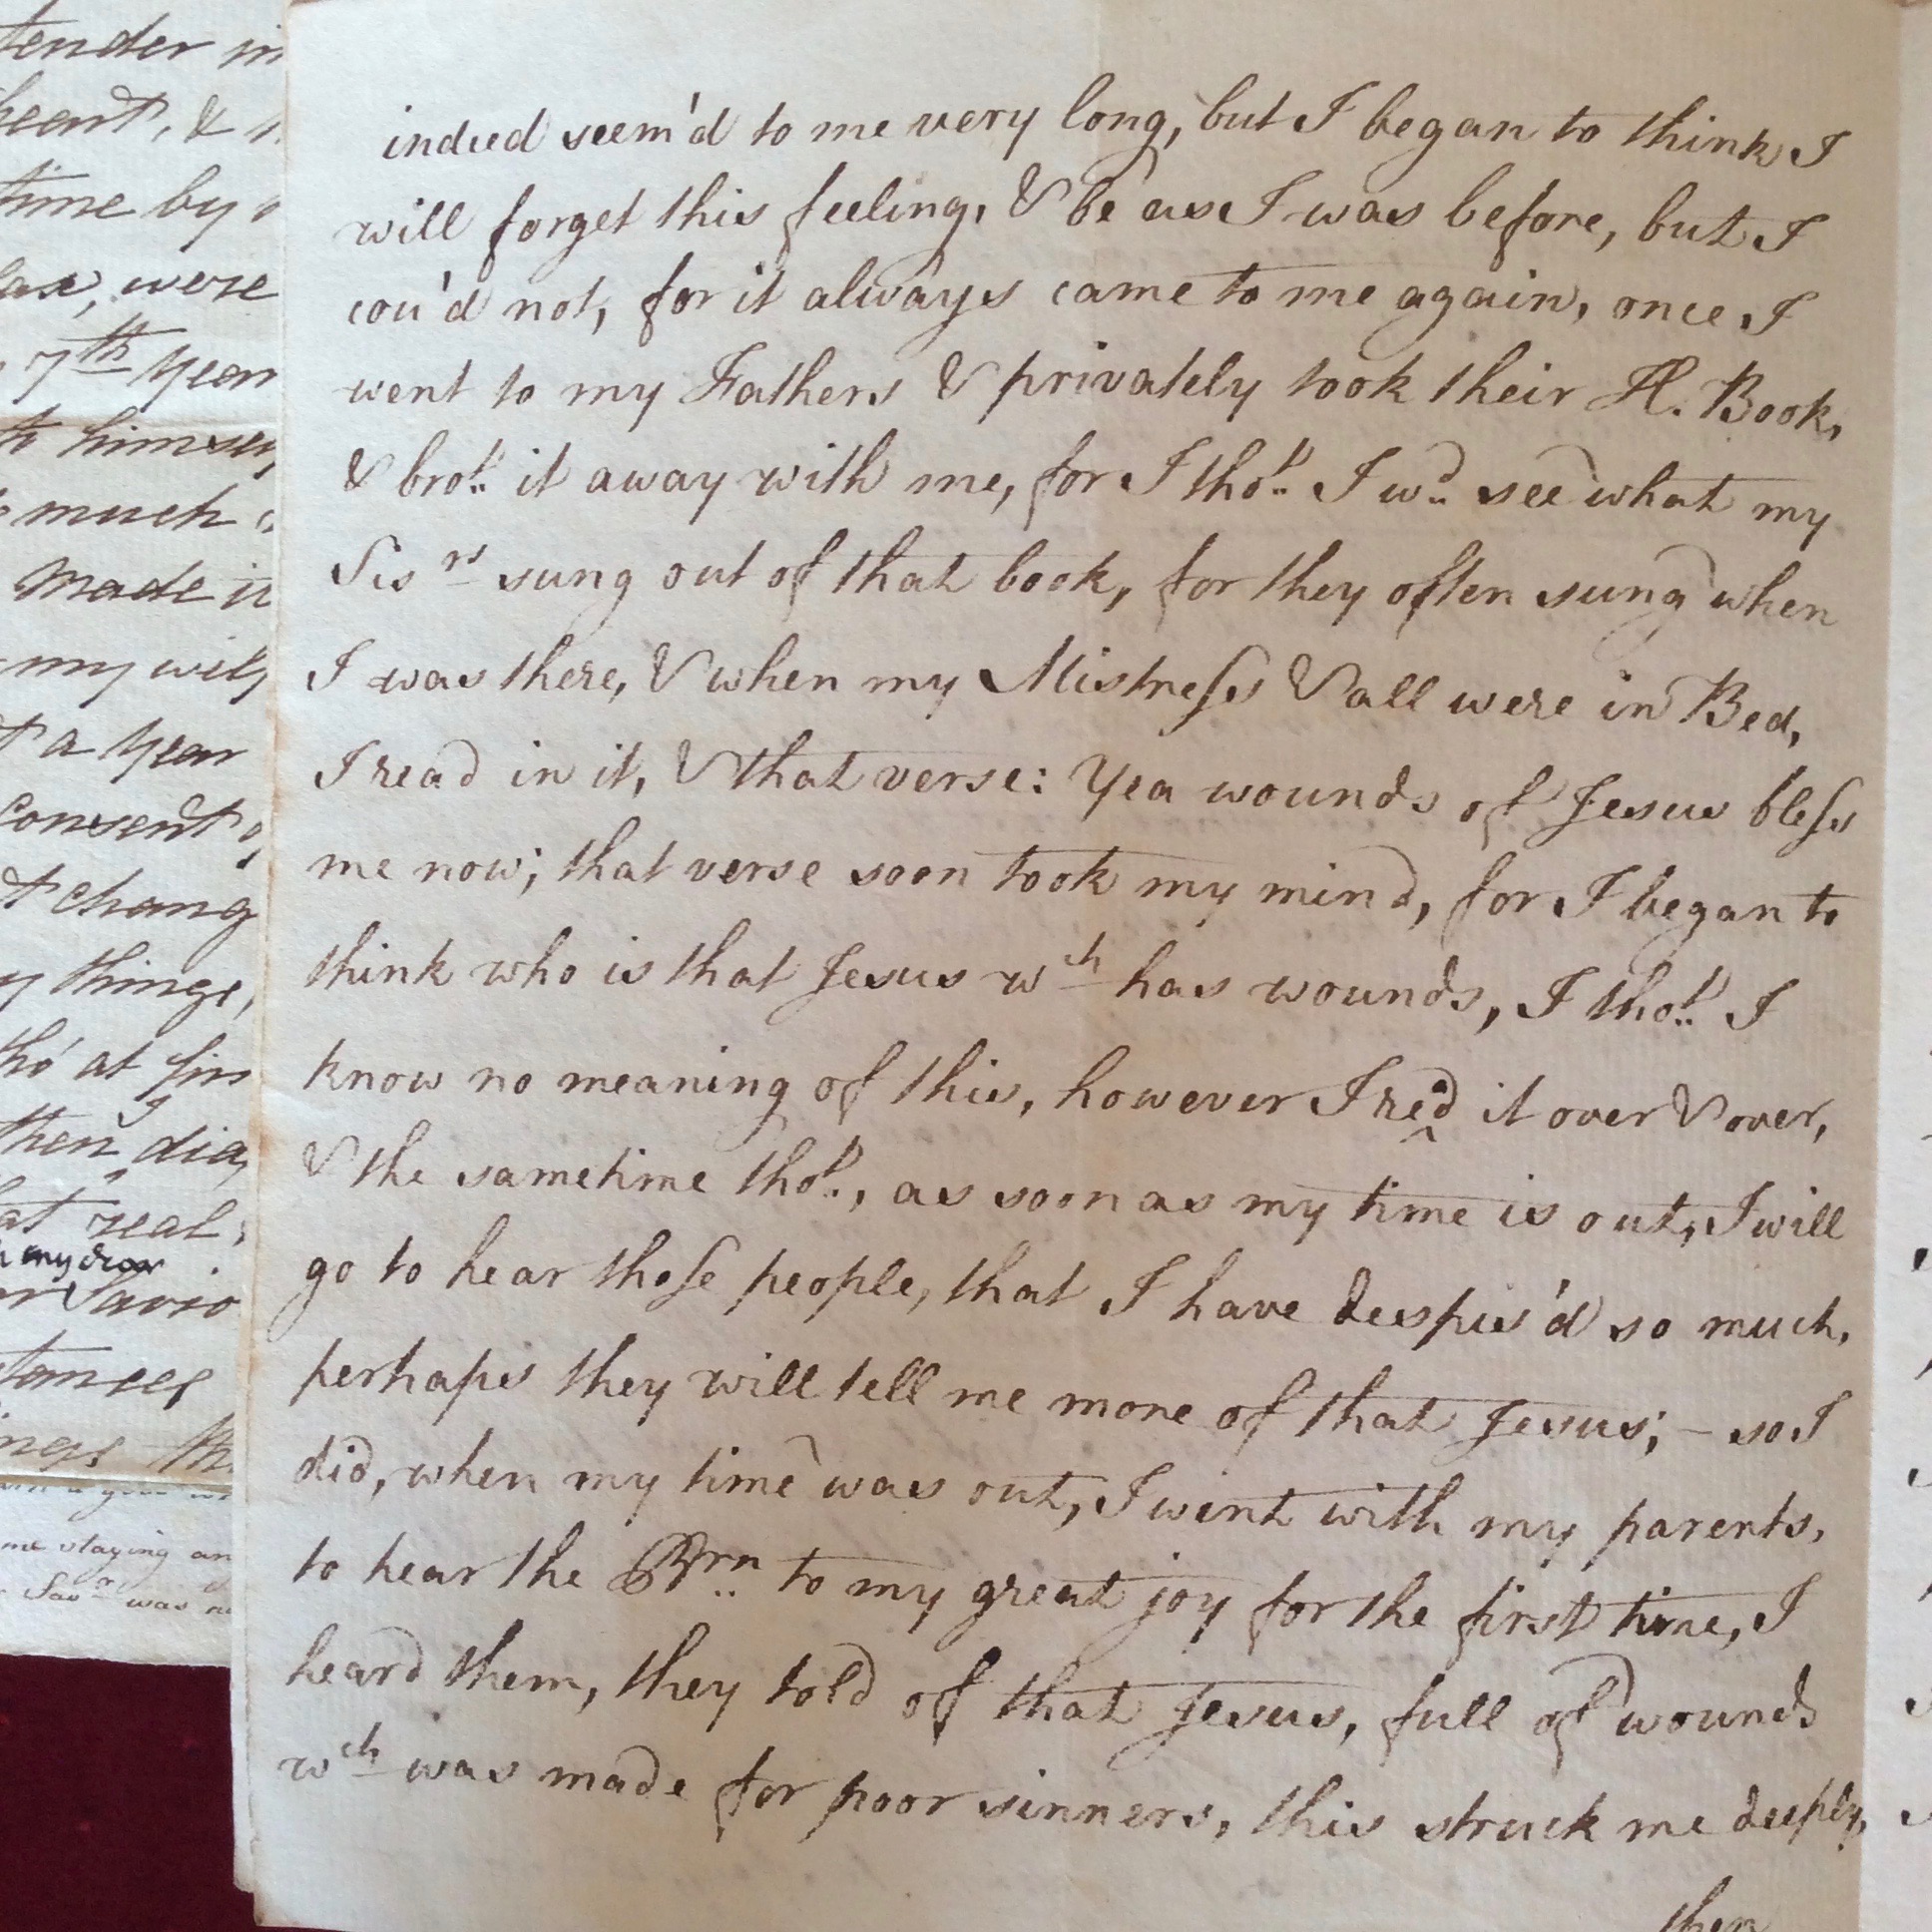 tender in
heart, &
time by
were
7th year
to himself
much
made it
my wily
a year
consent
change
things,
tho' at firs
then I did
at real
my dear
Savio
stances
ings th
me staying an
Savr was n
indeed seem'd to me very long, but I began to think I
will forget this feeling, & be as I was before, but I
cou'd not, for it always came to me again, once I
went to my Fathers & privately took their H. Book,
& brot. it away with me, for I thot. I wd. see what my
Sisrs sung out of that book, for they often sung when
I was there, & when my Mistress & all were in Bed,
I read in it, & that verse: Yea wounds of Jesus bless
me now; that verse soon took my mind, for I began to
think who is that Jesus wch has wounds, I thot. I
know no meaning of this, however I read it over & over,
& the sametime thot., as soon as my time is out, I will
go to hear those people, that I have despis'd so much,
perhaps they will tell me more of that Jesus; – so I
did, when my time was out, I went with my parents,
to hear the Brn. to my great joy for the first time, I
heard them, they told of that Jesus, full of wounds
wch was made for poor sinners, this struck me deeply,
then